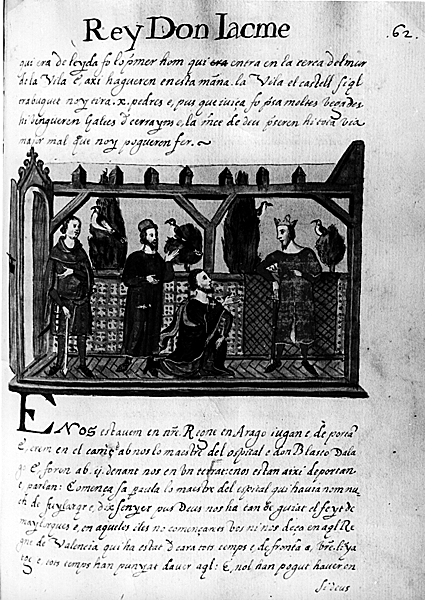 Rey Don Iacme
62.
qui era de leyda fo lo primer hom qui entra en la cerca del mur
de la Vila e, axi hagueren en esta mana. la Vila el castell si gl
trabuquet noy eira. x. pedres e, pus que iuica fo psa moltes vegades
hi vingueren Galees de e, la de deu pseren hi
major mal que noy pogueren fer.
E Nos estavem en nre. Regne en Arago iugant e, de
E, erem en el ab nos lo maestre del ospital e don Blasco Dala
go E, foron ab. ij. denant nos en un terrat e nos estan axi deportant
e, parlan: Comença sa paula lo maestre del espital qui havia nom nu
ch de fuylarquer e, dix senyer pus Deus vos ha tan be guiat el feyt de
maylorques e, en aqueles illes no començarets vos ni nos deca en aql Re
gne de Valencia qui ha estat de cara tots temps e de fronta a. vre. liya
tge e tots temps han punyat daver aql: E, nol han pogut haver on
si deus